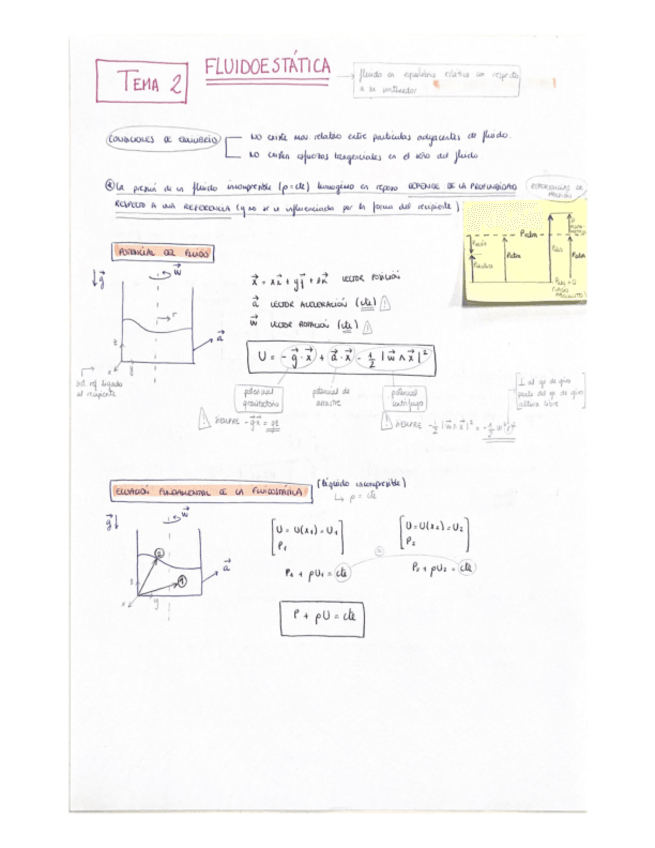 TEMA 2
FLUIDOESTÁTICA
fluido en equilibrio relativo con respecto
a su contenedor
CONDICIONES DE EQUILIBRIO
NO existe mov relativo entre partículas adyacentes de fluido.
NO existen esfuerzos tangenciales en el seno del fluido
La presión de un fluido incompresible (ρ=cte) homogéneo en reposo DEPENDE DE LA PROFUNDIDAD
RESPECTO A UNA REFERENCIA (y no se ve influenciada por la forma del recipiente)
REFERENCIAS DE PRESIÓN
Patm
Patm
Pabs
Patm
Pabs = 0
POTENCIAL DEL FLUIDO
g
w
r
a
z
x
y
sist. ref. ligado
al recipiente
x = xi + yj + zk VECTOR POSICIÓN
a VECTOR ACELERACIÓN (cte)
w VECTOR ROTACIÓN (cte)
U = -g·x + a·x - 1/2 |w ∧ x|²
potencial
gravitatorio
potencial de
arrastre
potencial
centrífugo
SIEMPRE -gx = gz
SIEMPRE -1/2 |w∧x|² = -1/2 w² r²
⊥ al eje de giro
parte del eje de giro
altura libre
ECUACIÓN FUNDAMENTAL DE LA FLUIDOSTÁTICA
(líquido incompresible)
↳ ρ = cte
g
w
2
1
a
z
x
y
U = U(x₁) = U₁
P₁
U = U(x₂) = U₂
P₂
P₁ + ρU₁ = cte
=
P₂ + ρU₂ = cte
P + ρU = cte